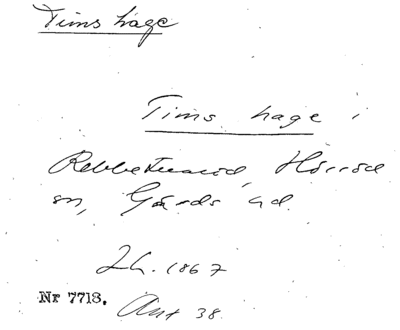 Tims hage
Tims hage i
Rebbetuaröd, Hörröd
sn, Gärds hd.
Lh. 1867
Nr 7713. Ant 38.